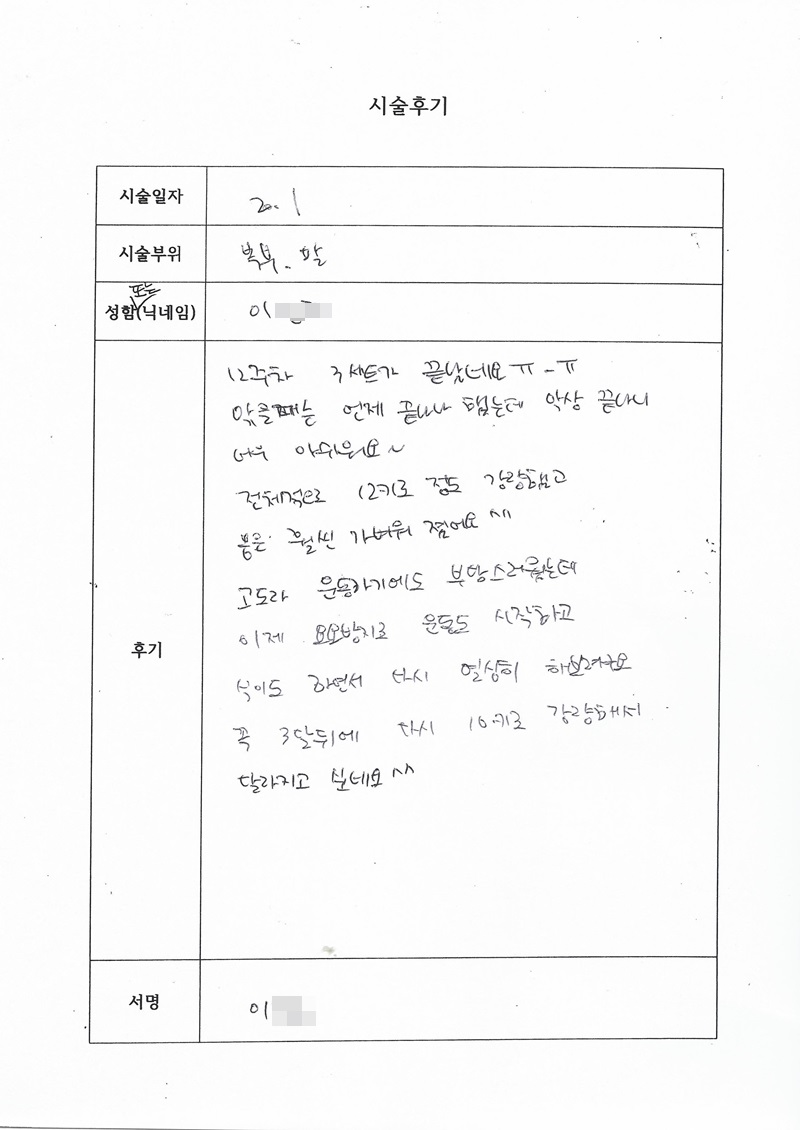 시술후기
시술일자 20. 1
시술부위 복부. 팔
또는
성함(닉네임) 이
12주차 3세트가 끝났네요 ㅠ-ㅠ
맞을때는 언제 끝나나 했는데 막상 끝나니
너무 아쉬워요~
전체적으로 12키로 정도 감량했고
몸은 훨씬 가벼워 졌어요 ^^
고도라 운동하기에도 부담스러웠는데
이제 요요방지로 운동도 시작하고
식이도 하면서 다시 열심히 해보려구요
꼭 3달뒤에 다시 10키로 감량해서
달라지고 싶네요 ^^
후기
서명 이